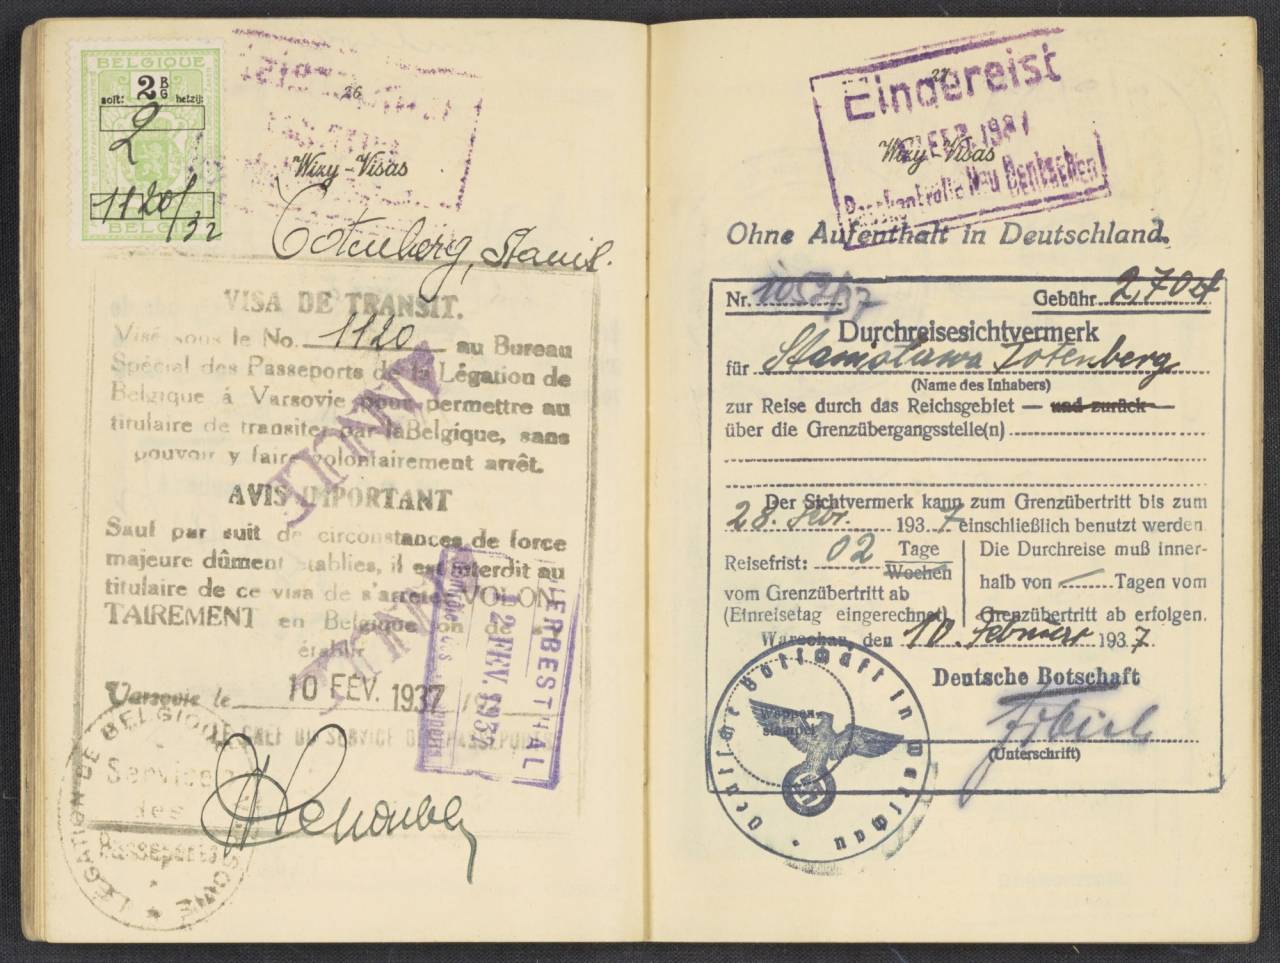 BELGIQUE
2 B
G
soit: hetzij:
2
1120/32
BELGIË
26
Wizy-Visas
Totenberg, Stanil.
VISA DE TRANSIT.
Visé sous le No. 1120 au Bureau
Spécial des Passeports de la Légation de
Belgique á Varsovie pour permettre au
titulaire de transiter par la Belgique, sans
pouvoir y faire volontairement arrêt.
AVIS IMPORTANT
Sauf par suit de circonstances de force
majeure dûment établies, il est interdit au
titulaire de ce visa de s'arreter VOLON
TAIREMENT en Belgique ou de s'y
établir
Varsovie le 10 FÉV. 1937
LE CHEF DU SERVICE DES PASSEPORTS
ANNULÉ
ANNULÉ
HERBESTHAL
12 FEV. 1937
LÉGATION DE BELGIQUE
VARSOVIE
Service
des
Passeports
27
Wizy-Visas
Eingereist
FEB. 1937
Passkontrolle Neu Bentschen
Ohne Aufenthalt in Deutschland.
Nr. 1052/37 Gebühr 2,70 zł
Durchreisesichtvermerk
für Stanisława Totenberg
(Name des Inhabers)
zur Reise durch das Reichsgebiet — und zurück —
über die Grenzübergangsstelle(n)
Der Sichtvermerk kann zum Grenzübertritt bis zum
28. Febr. 1937 einschließlich benutzt werden
Reisefrist: 02 Tage
Wochen
vom Grenzübertritt ab
(Einreisetag eingerechnet)
Die Durchreise muß inner-
halb von — Tagen vom
Grenzübertritt ab erfolgen.
Warschau, den 10. Februar 1937.
Deutsche Botschaft
(Unterschrift)
Deutsche Botschaft in Warschau
Wappen-
stempel